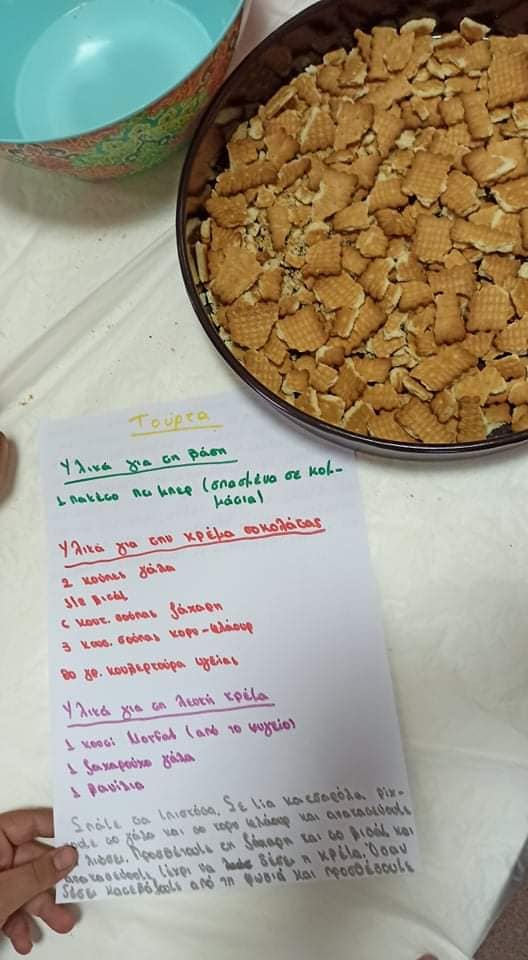 Τούρτα
Υλικά για τη βάση
1 πακέτο πτι μπερ (σπασμένα σε κομ-
μάτια)
Υλικά για την κρέμα σοκολάτας
2 κούπες γάλα
βιτάμ
6 κουτ. σούπας ζάχαρη
3 κουτ. σούπας κορν-φλάουρ
80 γρ. κουβερτούρα υγείας
Υλικά για τη λευκή κρέμα
1 κουτί Μορφατ (από το ψυγείο)
1 ζαχαρούχο γάλα
1 βανίλια
Σπάτε τα μπισκότα. Σε μια κατσαρόλα ρίχ-
νετε το γάλα και το κορν φλάουρ και ανακατεύετε
να λιώσει. Προσθέτετε τη ζάχαρη και το βιτάμ και
ανακατεύετε μέχρι να δέσει η κρέμα. Όταν
δέσει κατεβάζετε από τη φωτιά και προσθέτετε